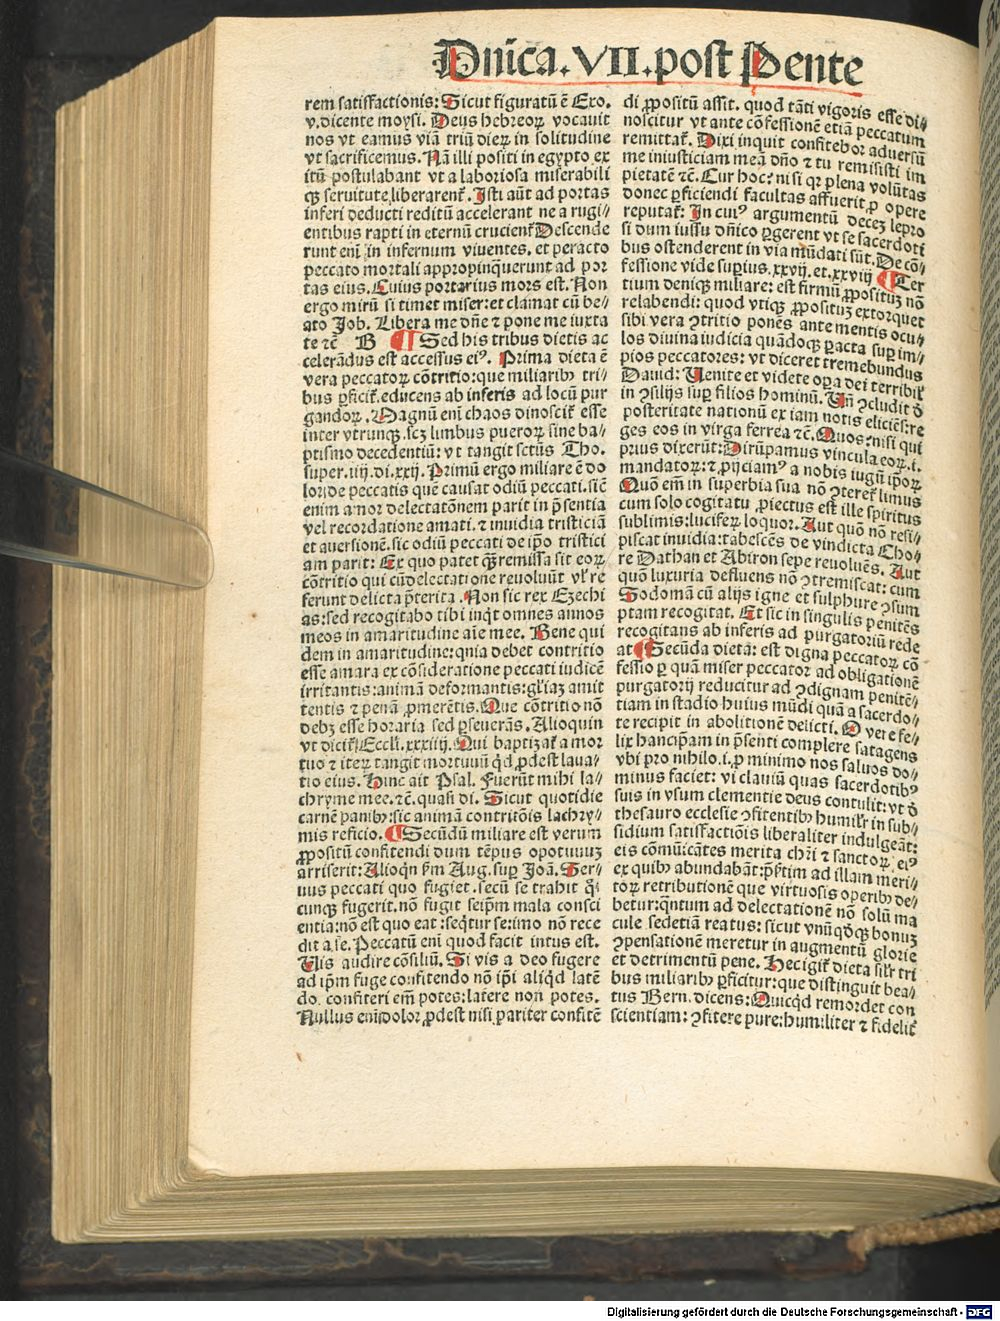 Dnica.VII.post Pente
rem satisfactionis: Sicut figuratū ē Exo.
v. dicente moysi. Deus hebreoꝝ vocauit
nos vt eamus viā triū dieꝝ in solitudine
vt sacrificemus. Nā illi positi in egypto ex
itū postulabant vt a laboriosa miserabili
qꝫ seruitute liberarent̄. Isti aūt ad portas
inferi deducti reditū accelerant ne a rugi/
entibus rapti in eternū crucient̄ Descende
runt eni in infernum viuentes. et peracto
peccato mortali appropinquerunt ad por
tas eius. Cuius portarius mors est. Non
ergo mirū si timet miser: et clamat cū be/
ato Job. Libera me dn̄e ⁊ pone me iuxta
te ⁊ē B ¶ Sed his tribus dietis ac
celerādus est accessus eiꝰ. Prima dieta ē
vera peccatoꝝ cōtritio: que miliaribꝫ tri/
bus ꝑficit̄. educens ab inferis ad locū pur
gandoꝝ. Magnū eni chaos dinoscit̄ esse
inter vtrunqꝫ. scꝫ limbus pueroꝝ sine ba/
ptismo decedentiū: vt tangit sctūs Tho.
super. iiij. di. xxij. Primū ergo miliare ē do
lor: de peccatis que causat odiū peccati. sic̄
enim amor delectatōnem parit in p̄sentia
vel recordatione amati. ⁊ inuidia tristiciā
et auersionē. sic odiū peccati de ip̄o tristici
am parit: Ex quo patet qꝫ remissa sit eoꝝ
cōtritio qui cū delectatione reuoluūt vl̄ re
ferunt delicta p̄terita. Non sic rex Ezechi
as: sed recogitabo tibi inqt omnes annos
meos in amaritudine aīe mee. Bene qui
dem in amaritudine: qnia debet contritio
esse amara ex cōsideratione peccati iudicē
irritantis: animā deformantis: gl̄iaꝫ amit
tentis ⁊ penā ꝓmerētis. Que cōtritio nō
debꝫ esse horaria sed ꝑseuerās. Alioquin
vt dicit̄ Eccli. xxxiiij. Qui baptizat̄ a mor
tuo ⁊ iteꝝ tangit mortuuū qd ꝓdest laua/
tio eius. Hinc ait Psal. Fuerūt mihi la/
chryme mee. ⁊c. quasi di. Sicut quotidie
carnē panibꝫ: sic animā contritōis lachry/
mis reficio. ¶ Secūdū miliare est verum
ꝓpositū confitendi dum tēpus opotuuuꝫ
arriserit: Alioqn ẜm Aug. suꝑ Joā. Ser/
uus peccati quo fugiet. secū se trahit q̄
cunqꝫ fugerit. nō fugit seip̄m mala consci
entia: nō est quo eat: seqtur se: imo nō rece
dit a se. Peccatū eni quod facit intus est.
Vis audire cōsiliū. Si vis a deo fugere
ad ip̄m fuge confitendo nō ip̄i aliqd latē
do. confiteri em̄ potes: latere non potes.
Nullus eni dolor ꝓdest nisi pariter confitē
di ꝓpositū assit. quod tāti vigoris esse di/
noscitur vt ante cōfessionē etiā peccatum
remittat̄. Dixi inquit confitebor aduersū
me iniusticiam meā dn̄o ⁊ tu remisisti im
pietatē ⁊ē. Cur hoc? nisi qꝛ plena volūtas
donec ꝑficiendi facultas affuerit ꝓ opere
reputat̄: In cuiꝰ argumentū deceꝫ lepro
si dum iussu dn̄ico ꝑgerent vt se sacerdoti
bus ostenderent in via mūdati sūt. De cō/
fessione vide suꝑius. xxvij. et. xxviij ¶ Ter
tium deniqꝫ miliare: est firmū ꝓpositūꝫ nō
relabendi: quod vtiqꝫ ꝓpositūꝫ extorquet
sibi vera ꝯtritio ponēs ante mentis ocu/
los diuina iudicia quādoqꝫ ꝑacta suꝑ im/
pios peccatores: vt diceret tremebundus
Dauid: Uenite et videte oꝑa dei terribil̄
in ꝯsilijs suꝑ filios hominū. Un̄ ꝯcludit ō
posteritate nationū ex iam notis elicies: re
ges eos in virga ferrea ⁊c. Quos? nisi qui
prius dixerūt: Dirūpamus vincula eoꝝ. i.
mandatoꝝ: ⁊ ꝓijciamꝰ a nobis iugū ip̄oꝝ
Quō em̄ in superbia sua nō ꝯteret̄ limus
cum solo cogitatu ꝓiectus est ille spiritus
sublimis: luciferꝝ loquor. Aut quō nō resi/
piscat inuidia: tabescēs de vindicta Cho/
re Dathan et Abiron sepe reuoluēs. Aut
quō luxuria defluens nō ꝯtremiscat: cum
Sodomā cū alijs igne et sulphure ꝯsum
ptam recogitat. Et sic in singulis penitēs
recogitans ab inferis ad purgatoriū rede
at ¶ Secūda dieta: est digna peccatoꝝ cō
fessio ꝑ quā miser peccator ad obligationē
purgatorij reducitur ad ꝯdignam penitē/
tiam in stadio huius mūdi quā a sacerdo/
te recipit in abolitionē delicti. O vere fe/
lix hanc ip̄am in p̄senti complere satagens
vbi pro nihilo. i. ꝓ minimo nos saluos do/
minus faciet: vi clauiū quas sacerdotibꝰ
suis in vsum clementie deus contulit: vt ō
thesauro ecclesie ꝯfitentibꝫ humilr̄ in sub/
sidium satisfactiōis liberaliter indulgeāt:
eis cōmūicātes merita chr̄i ⁊ sanctoꝝ eiꝰ
ex quibꝫ abundabāt: p̄ſtim ad illam meri/
toꝝ retributionē que virtuosis operibꝫ de/
betur: qntum ad delectationē nō solū ma
cule sedetiā reatus: sicut vnūqdqꝫ bonuꝫ
ꝯpensationē meretur in augmentū glorie
et detrimentū pene. Hec igit̄ dieta silr̄ tri
bus miliaribꝫ ꝑficitur: que distinguit bea/
tus Bern. dicens: Quicqd remordet con
scientiam: ꝯfitere pure: humiliter ⁊ fidelit̄
Digitalisierung gefördert durch die Deutsche Forschungsgemeinschaft - DFG